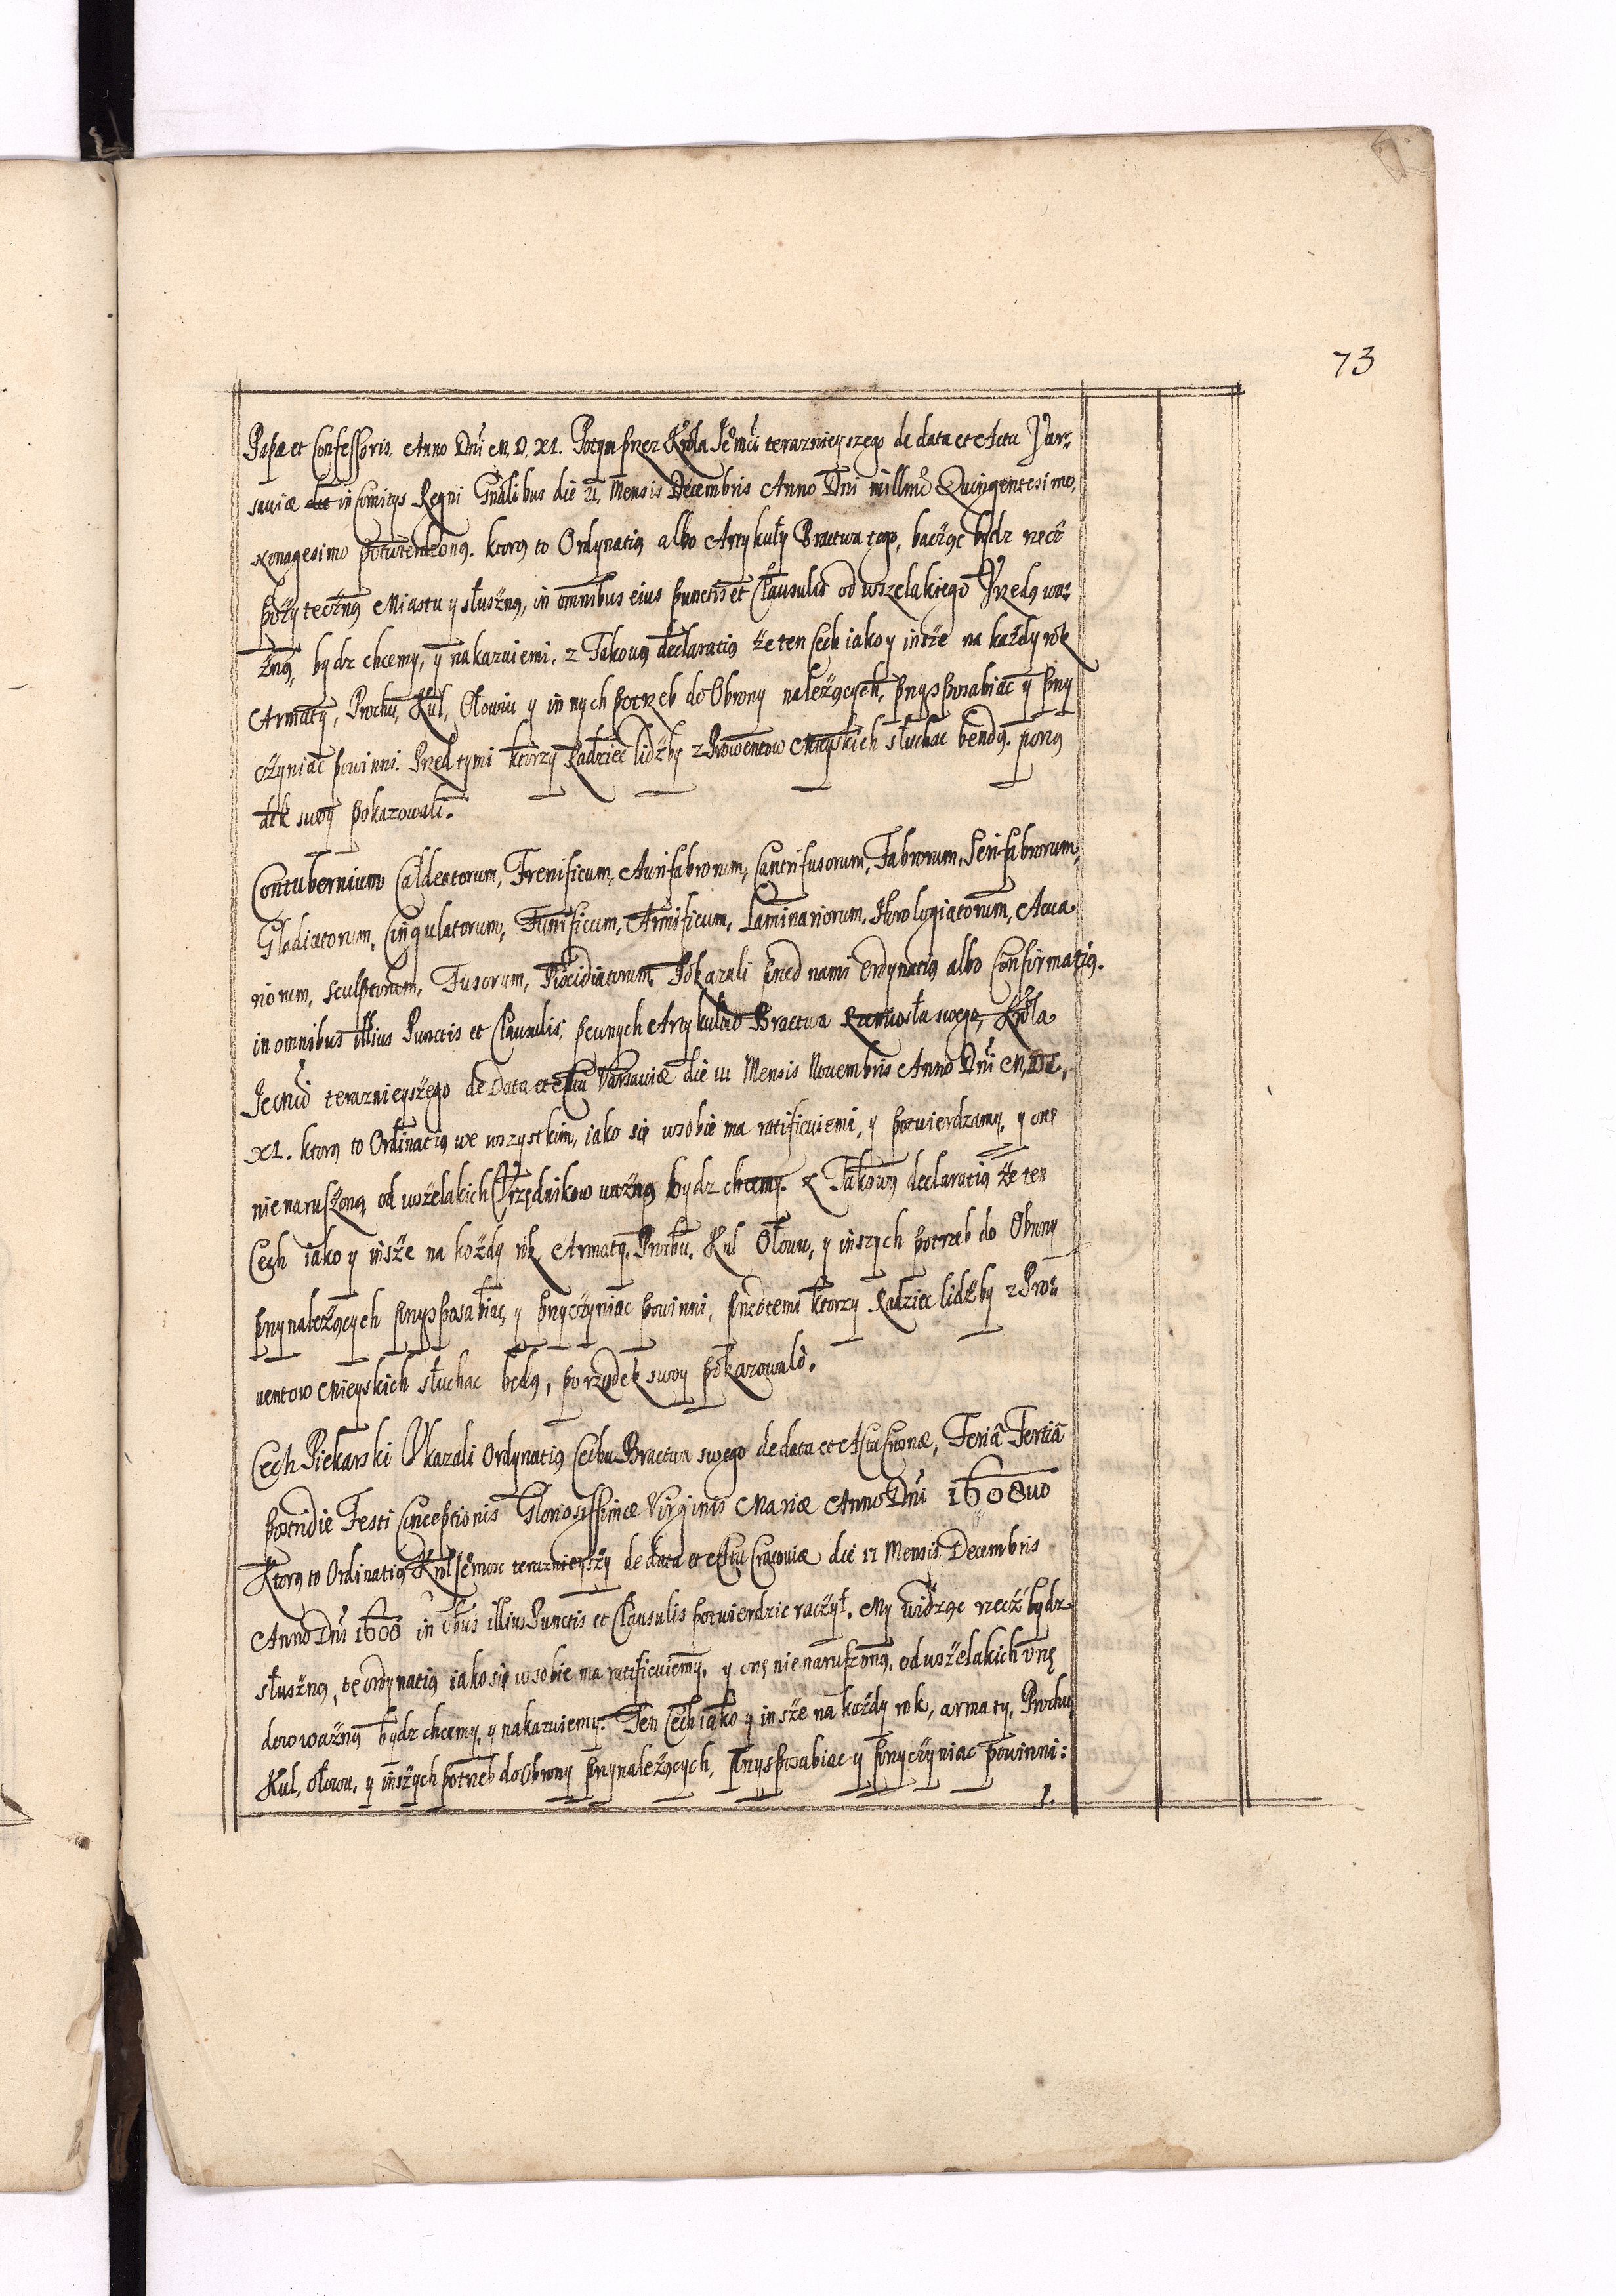 73
Papæ et Confessoris. Anno Dni M. D. XL. Potym przez Krola Je°mći teraznieyszego de data et Actu Var-
saviæ die in Comitys Regni Gnalibus die 21. Mensis Decembris Anno Dni millmo Quingentesimo,
nonagesimo potwierdzoną. ktorą to Ordynatią albo Artykuły Bractwa tego, bacżąc bydz rzecż
pożytecżną Miastu y słuszną, in omnibus eius punctis et Clausulis od wszelakiego Vrzędu wa-
żną, bydz chcemy, y nakazuiemi. z Takową declaratią że ten Cech iako y insze na każdy rok
Armaty, Prochu, Kul, Ołowiu y innych potrzeb do Obrony należących, przysposabiac y przy
cżyniac powinni. Przed tymi ktorzy Radziec lidżby z Prowentow Mieyskich słuchac bendą. porzą
dek swoy pokazowali.
Contubernium Caldeatorum, Frenificum, Aurifabrorum, Cantrifusorum, Fabrorum, Serifabrorum,
Gladiatorum, Cingulatorum, Funificum, Armificum, Laminariorum, Horologiatorum, Acua
riorum, Sculptorum, Fusorum, Pokazali przed nami Ordynatią albo Confirmatią.
in omnibus illius Punctis et Clausulis, pewnych Artykulow Bractwa Rzemiosła swego, Krola
Jeomci teraznieyszego de Data et Actu Varsaviæ die III Mensis Novembris Anno Dni M, DC,
XI. ktorą to Ordinatią we wszystkim, iako się wsobie ma ratificuiemi, y potwierdzamy, y onę
nienaruszoną od wszelakich Vrzędnikow ważną bydz chcemy. z Takową declaratią że ten
Cech iako y insze na kożdy rok Armaty, Prochu. Kul Ołowu, y inszych potrzeb do Obrony
przynależących przysposabiac, y przycżyniac powinni, przedtemi ktorzy Radziec lidżby z Pro-
ventow Mieyskich słuchac będą, porządek swoy pokazowali.
Cech Piekarski Vkazali Ordynatią Cechu Bractwa swego de data et Actu Leonæ, Feria Tertia
postridie Festi Conceptionis Gloriosissimæ Virginis Mariæ Anno Dni 1608vo
Ktorą to Ordinatią Krol Jemosc teraznieyszy de data et Actu Cracoviæ die 11 Mensis Decembris
Anno Dni 1608 in obus illius Punctis et Clausulis potwierdzic racżył. My widząc rzecż bydz
słuszną, tę ordynatią iako się wsobie ma ratificuiemy. y onę nienaruszoną. od wszelakich Vrzę
dow ważną bydz chcemy, y nakazuiemy. Ten Cech iako y insze na każdy rok, armaty, Prochu,
Kul, ołowu, y inszych potrzeb do Obrony przynależących, przysposabiac y przycżyniac powinni: